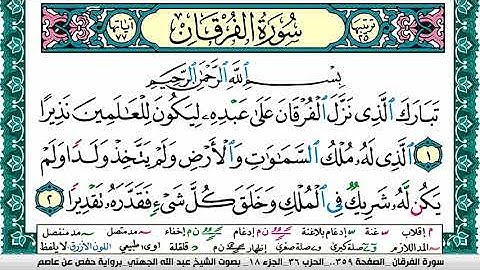 سُورَةُ الفُرْقَانِ
ترتيبها ٢٥
آياتها ٧٧
بِسْمِ اللَّهِ الرَّحْمَٰنِ الرَّحِيمِ
تَبَارَكَ الَّذِي نَزَّلَ الْفُرْقَانَ عَلَىٰ عَبْدِهِ لِيَكُونَ لِلْعَالَمِينَ نَذِيرًا
١ الَّذِي لَهُ مُلْكُ السَّمَاوَاتِ وَالْأَرْضِ وَلَمْ يَتَّخِذْ وَلَدًا وَلَمْ
يَكُن لَّهُ شَرِيكٌ فِي الْمُلْكِ وَخَلَقَ كُلَّ شَيْءٍ فَقَدَّرَهُ تَقْدِيرًا ٢
م إقلاب س غنة إدغام بلاغنة ن م إدغام ن م إخفاء مد متصل مد منفصل
المد اللازم صلة كبرى صلة صغرى إظهار ن م قلقلة اوى طبيعي اللون الأزرق لا يلفظ
سورة الفرقان .. الصفحة ٣٥٩.. الحزب ٣٦ .. الجزء ١٨ .. بصوت الشيخ عبد الله الجهني .. برواية حفص عن عاصم